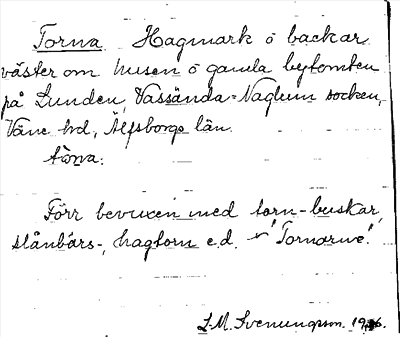 Torna Hagmark ō backar
väster om husen ō gamla bytomten
på Lunden, Vassända-Naglum socken,
Väne hd, Älfsborgs län.
tòrna:
Förr bevuxen med torn-buskar,
slånbärs-, hagtorn e.d. "Tornorne".
L.M. Svenungsson. 1916.